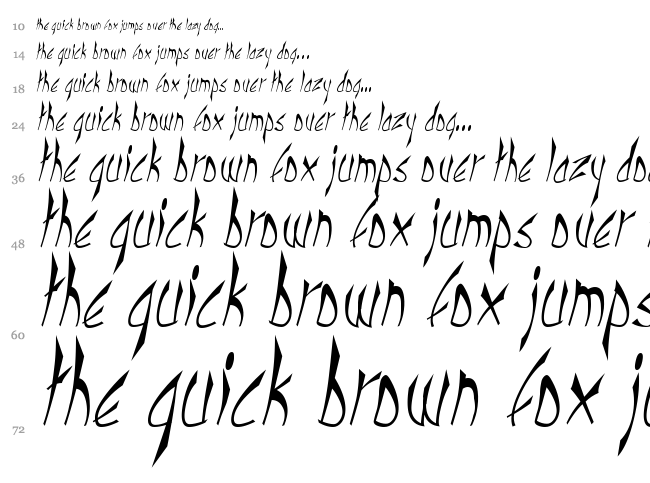 10 the quick brown fox jumps over the lazy dog...
14 the quick brown fox jumps over the lazy dog...
18 the quick brown fox jumps over the lazy dog...
24 the quick brown fox jumps over the lazy dog...
36 the quick brown fox jumps over the lazy do
48 the quick brown fox jumps over
60 the quick brown fox jumps
72 the quick brown fox j